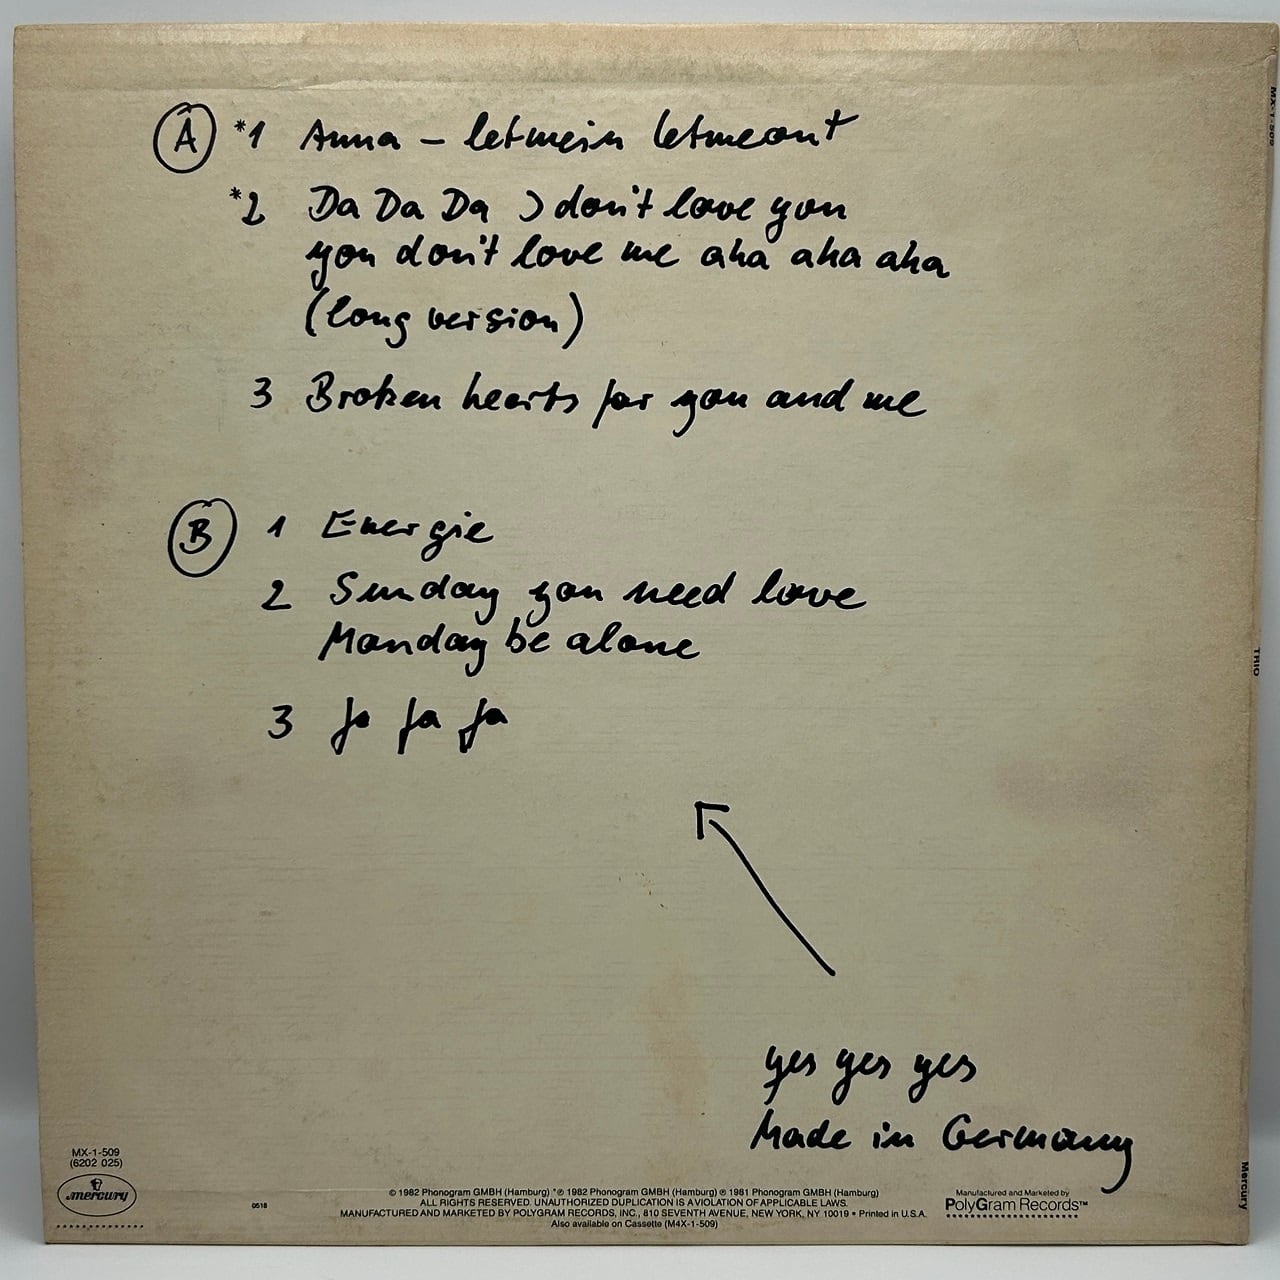 A *1 Anna – letmein letmeout
*2 Da Da Da I don't love you
you don't love me aha aha aha
(long version)
3 Broken hearts for you and me
B 1 Energie
2 Sunday you need love
Monday be alone
3 Ja Ja Ja
yes yes yes
Made in Germany
MX-1-509
(6202 025)
mercury
0518
© 1982 Phonogram GMBH (Hamburg) *℗ 1982 Phonogram GMBH (Hamburg) ℗ 1981 Phonogram GMBH (Hamburg)
ALL RIGHTS RESERVED. UNAUTHORIZED DUPLICATION IS A VIOLATION OF APPLICABLE LAWS.
MANUFACTURED AND MARKETED BY POLYGRAM RECORDS, INC., 810 SEVENTH AVENUE, NEW YORK, NY 10019 • Printed in U.S.A.
Also available on Cassette (M4X-1-509)
Manufactured and Marketed by
PolyGram Records™
MX-1-509
TRIO
Mercury